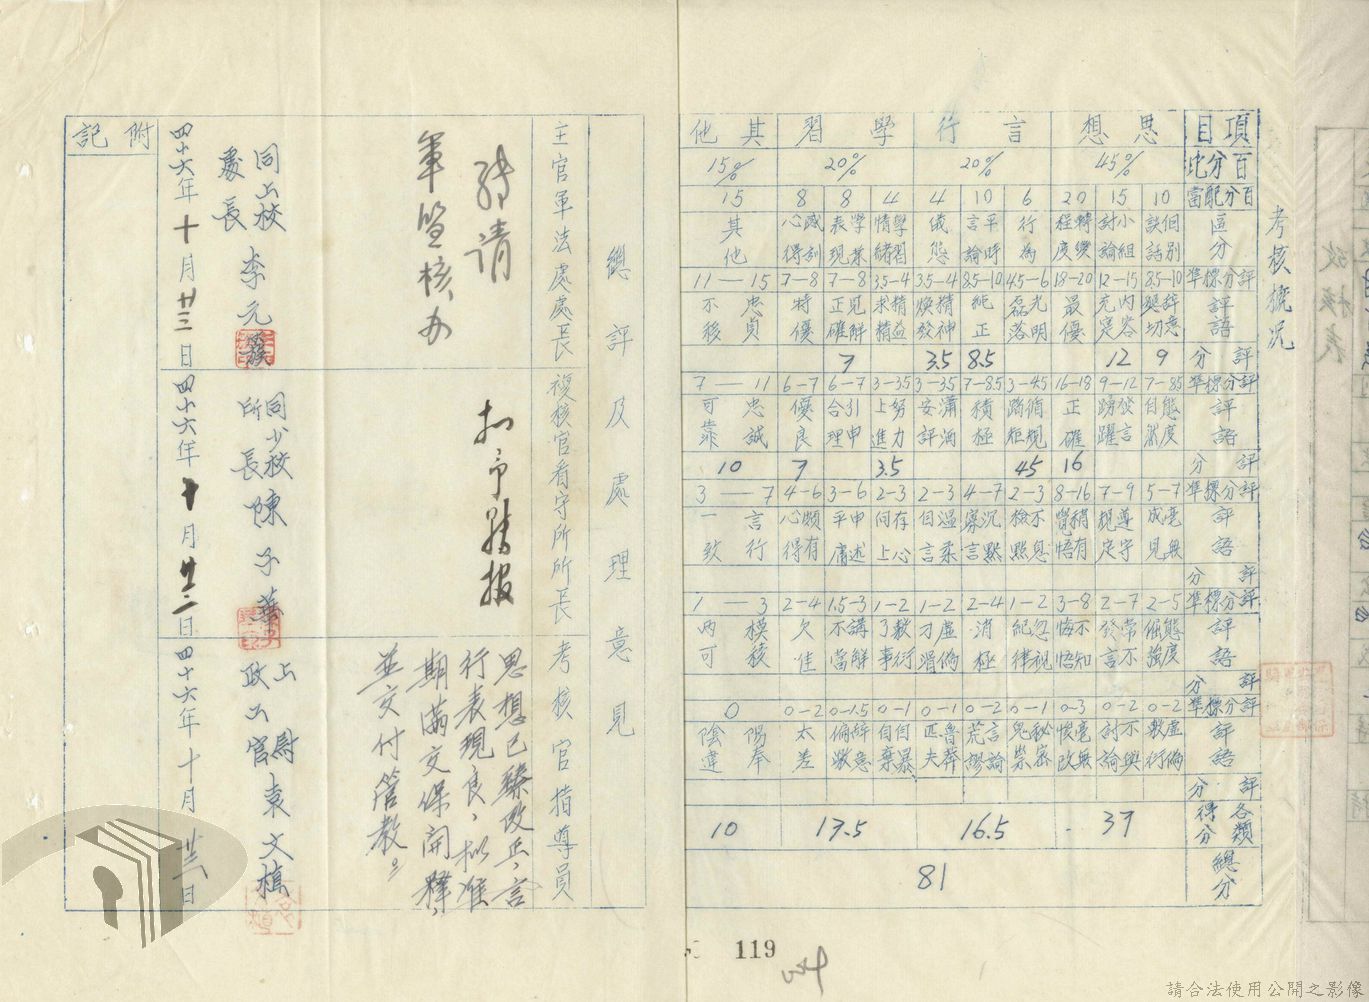 考核概況
項目 思想 言行 學習 其他
百分比 45% 20% 20% 15%
百分配當 10 15 20 6 10 4 4 8 8 15
區分 個別談話 小組討論 轉變程度 行為 平時言論 儀態 學習情緒 學業表現 感別心得 其他
評分標準 8.5—10 12—15 18—20 4.5—6 8.5—10 3.5—4 3.5—4 7—8 7—8 11—15
評語 辭意懇切 內容充實 最優 光明磊落 純正 精神煥發 精益求精 見解正確 特優 忠貞不移
評分 9 12 8.5 3.5 7
評分標準 7—8.5 9—12 16—18 3—4.5 7—8.5 3—3.5 3—3.5 6—7 6—7 7—11
評語 態度自然 發言踴躍 正確 循規蹈矩 積極 瀟洒安評 努力上進 引申合理 優良 忠誠可靠
評分 16 4.5 3.5 7 10
評分標準 5—7 7—9 8—16 2—3 4—7 2—3 2—3 3—6 4—6 3—7
評語 毫無成見 遵守規定 稍有覺悟 不息檢點 沉默寡言 溫柔自言 存心向上 申述平庸 頗有心得 言行一致
評分
評分標準 2—5 2—7 3—8 1—2 2—4 1—2 1—2 1.5—3 2—4 1—3
評語 態度倔強 常不發言 不知悔悟 忽視紀律 消極 虛偽刁滑 敷衍了事 講解不當 欠佳 模稜兩可
評分
評分標準 0—2 0—2 0—3 0—1 0—2 0—1 0—1 0—1.5 0—2 0
評語 虛偽敷衍 不與討論 毫無悛改 秘密鬼祟 言論荒謬 魯莽匹夫 自暴自棄 辭意偏激 太差 陽奉陰違
評分
各類得分 37 16.5 17.5 10
總分 81
總評及處理意見
主官軍法處處長
複核官看守所所長
考核官指導員
轉請
軍監核办
擬予轉報
思想已臻改正，言
行表現良，擬准
期滿交保開釋，
並交付管教。
同上校
處長
李元簇
四十六年十月廿三日
同少校
所長
陳予華
四十六年十月廿二日
上尉
政工官
袁文楨
四十六年十月廿日
附記
119
請合法使用公開之影像